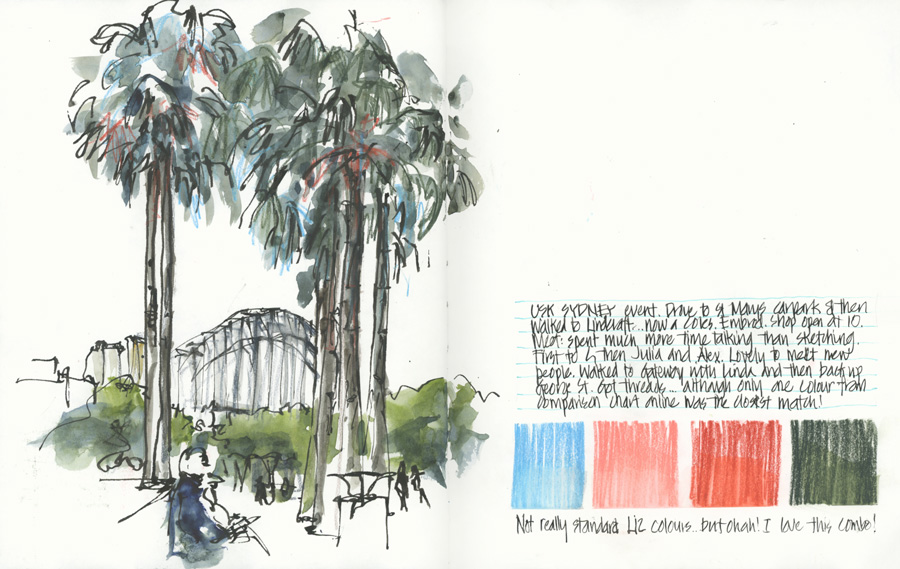 USK SYDNEY event. Drive to St Marys carpark & then
walked to Lindcraft... now a Coles. Embroi. shop open at 10.
spent much more time talking than sketching.
First to then Julia and Alex. Lovely to meet new
people. Walked to Gateway with Linda and then back up
George St. Got threads... although only one colour from
comparison chart online was the closest match!
Not really standard Liz colours.. but ohah! I love this combo!